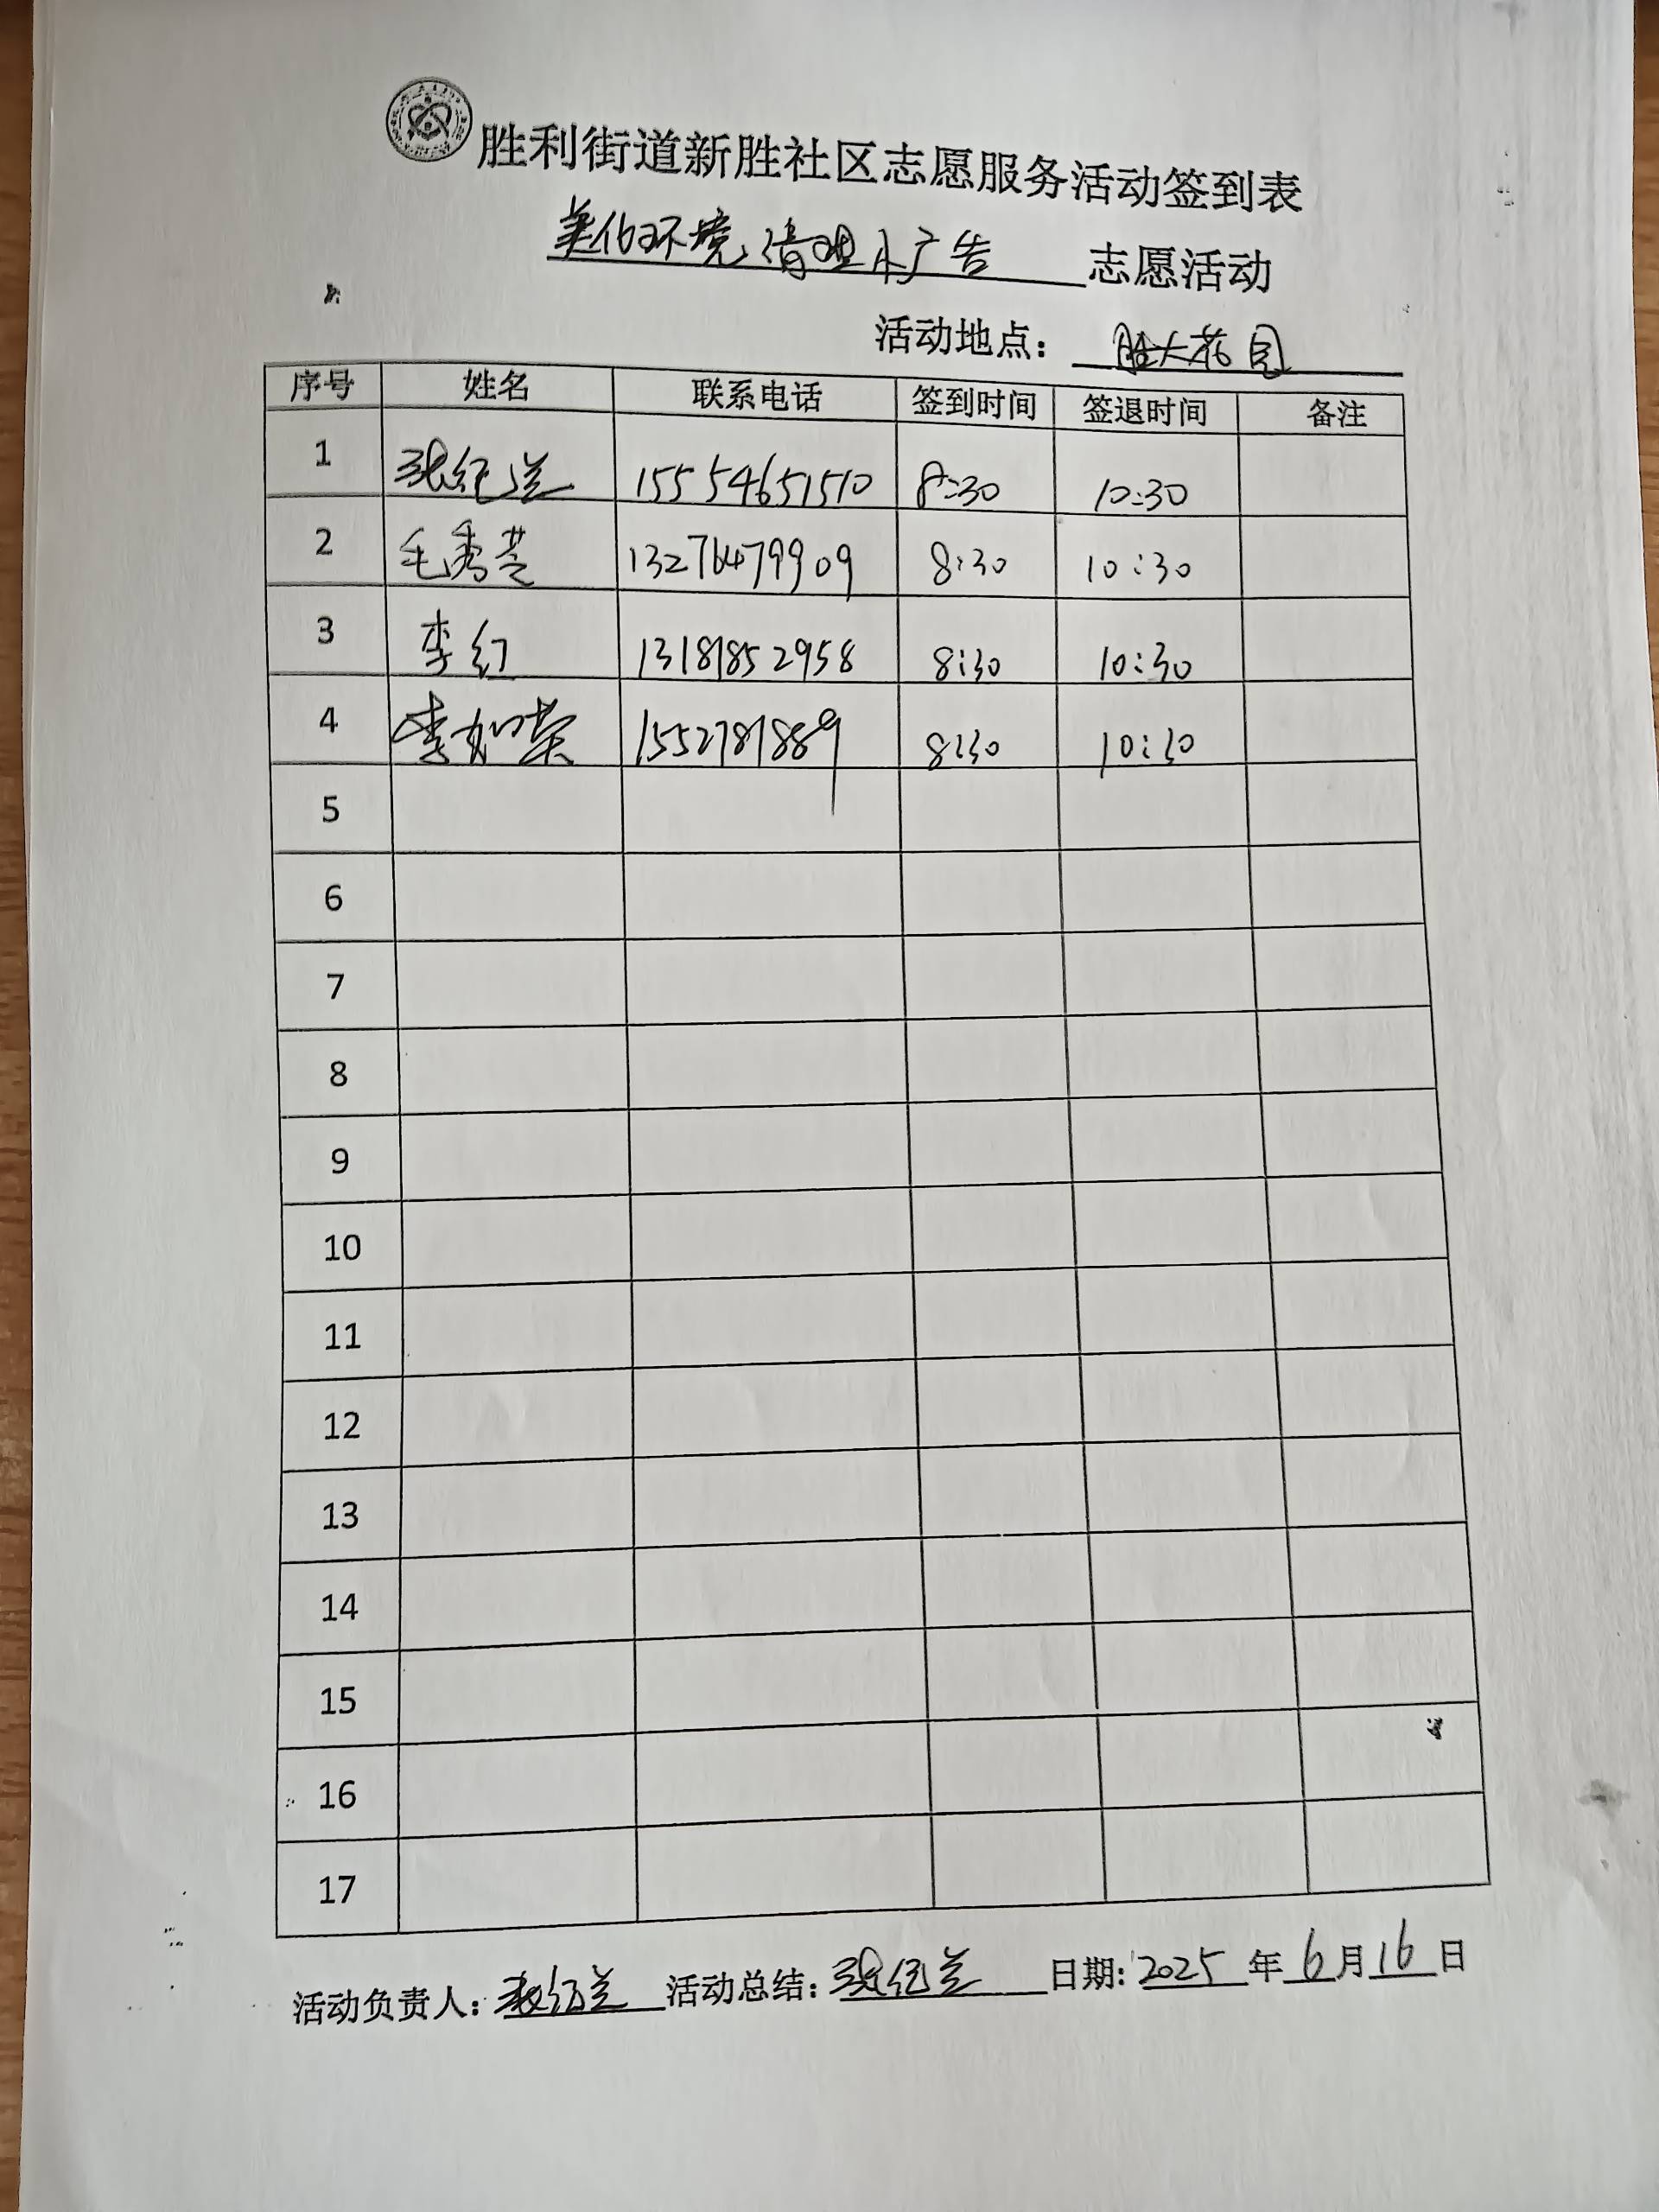 胜利街道新胜社区志愿服务活动签到表
美化环境,清理小广告 志愿活动
活动地点: 胜大花园
序号 姓名 联系电话 签到时间 签退时间 备注
1 张纪兰 15554651510 8:30 10:30
2 毛秀芝 13276479909 8:30 10:30
3 李红 13181852958 8:30 10:30
4 李如荣 1552781889 8:30 10:30
5
6
7
8
9
10
11
12
13
14
15
16
17
活动负责人: 张纪兰 活动总结: 张纪兰 日期: 2025 年 6 月 16 日